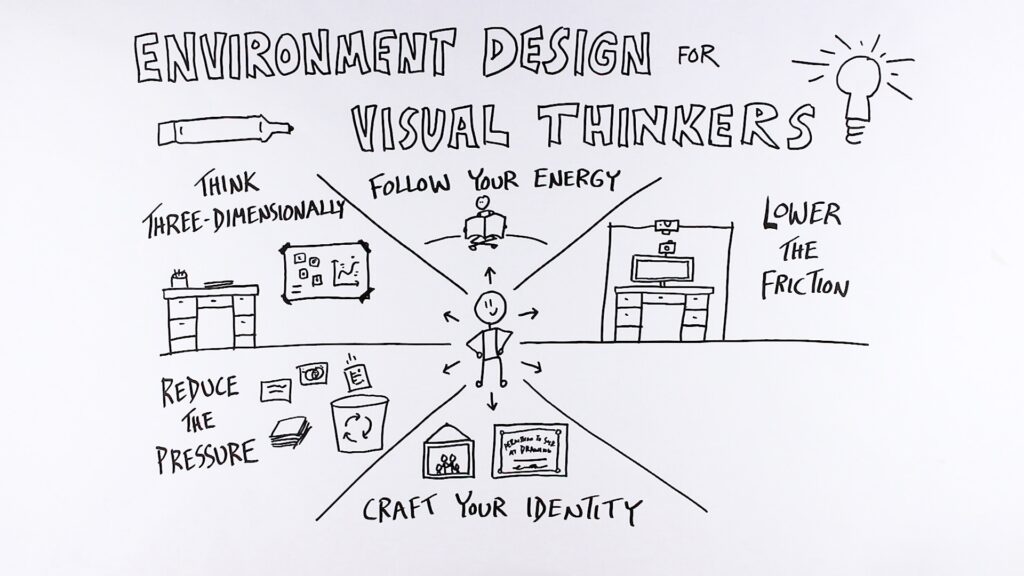 ENVIRONMENT DESIGN FOR
VISUAL THINKERS
THINK
THREE-DIMENSIONALLY
FOLLOW YOUR ENERGY
LOWER
THE
FRICTION
REDUCE
THE
PRESSURE
PERMISSION TO SUCK
AT DRAWING
CRAFT YOUR IDENTITY